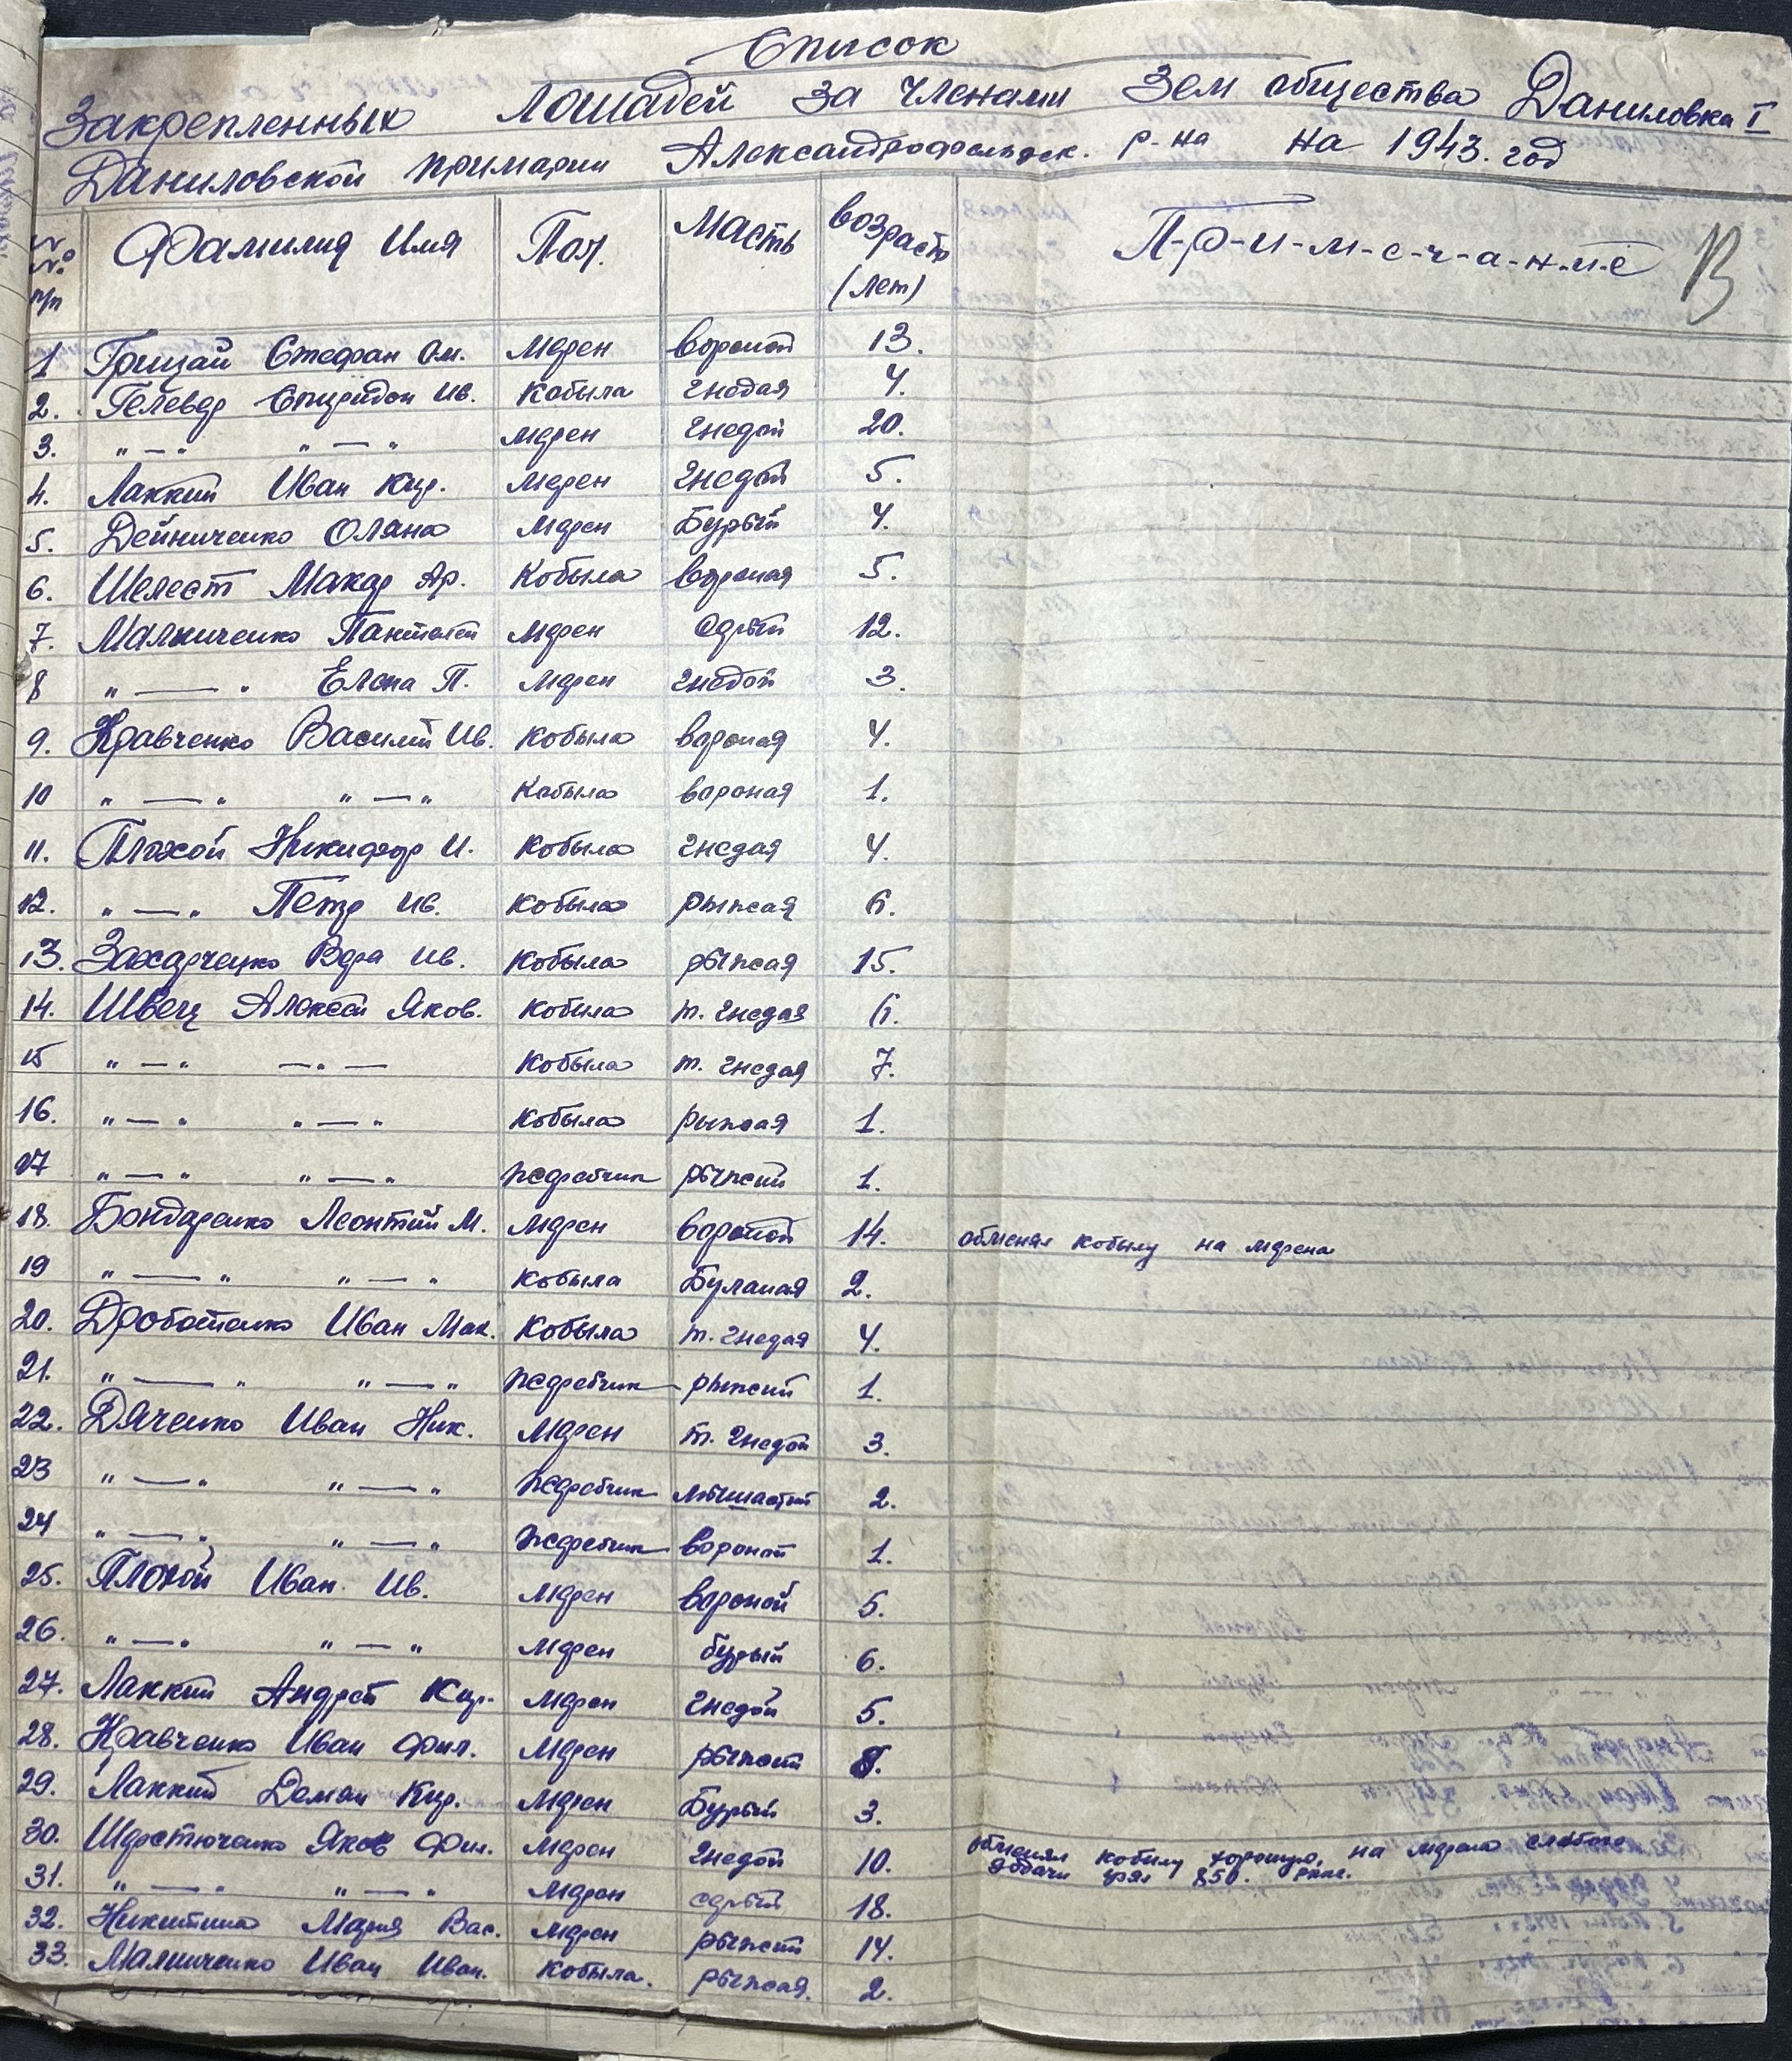 Список
Закрепленных Лошадей за членами Зем общества Даниловка I
Даниловской примарии Александрофельдск. р-на на 1943. год
№ № п/п Фамилия Имя Пол. Масть возраст (лет) П-р-и-м-е-ч-а-н-и-е
1 Грицай Стефан Ом. Мерен вороной 13.
2. Гелевер Спиридон Ив. Кобыла гнедая 4.
3. " — " " — " мерен гнедой 20.
4. Лаккий Иван Кир. мерен гнедой 5.
5. Дейниченко Оляна мерен Бурый 4.
6. Шелест Макар Ар. Кобыла вороная 5.
7. Малниченко Пантелей мерен серый 12.
8 " — " Елена П. мерен гнедой 3.
9. Кравченко Василий Ив. кобыла вороная 4.
10 " — " " — " Кобыла вороная 1.
11. Плохой Никифор И. кобыла гнедая 4.
12. " — " Петр Ив. кобыла рыжая 6.
13. Захарченко Вера Ив. кобыла рыжая 15.
14. Швец Алексей Яков. кобыла т. гнедая 6.
15 " — " — " — кобыла т. гнедая 7.
16. " — " " — " кобыла рыжая 1.
17 " — " " — " жеребчик рыжий 1.
18. Бондаренко Леонтий М. мерен вороной 14. обменял кобылу на мерена
19 " — " " — " кобыла Буланая 2.
20. Дроботенко Иван Мак. Кобыла т. гнедая 4.
21. " — " " — " жеребчик рыжий 1.
22. Дяченко Иван Ник. мерен т. гнедой 3.
23 " — " " — " жеребчик мышастый 2.
24 " — " " — " жеребчик вороной 1.
25. Плохой Иван. Ив. мерен вороной 5.
26. " — " " — " мерен бурый 6.
27. Лаккий Андрей Кир. мерен гнедой 5.
28. Кравченко Иван Фил. мерен рыжий
29. Лаккий Демьян Кир. мерен Бурый 3.
30. Шерстюченко Яков Фил. мерен гнедой 10. обменял кобылу хорошую, на мерена слабого
здачи взял 850.
31. " — " " — " мерен серый 18.
32. Никитина Мария Вас. мерен рыжий 14.
33. Малниченко Иван Иван. кобыла. рыжая. 2.